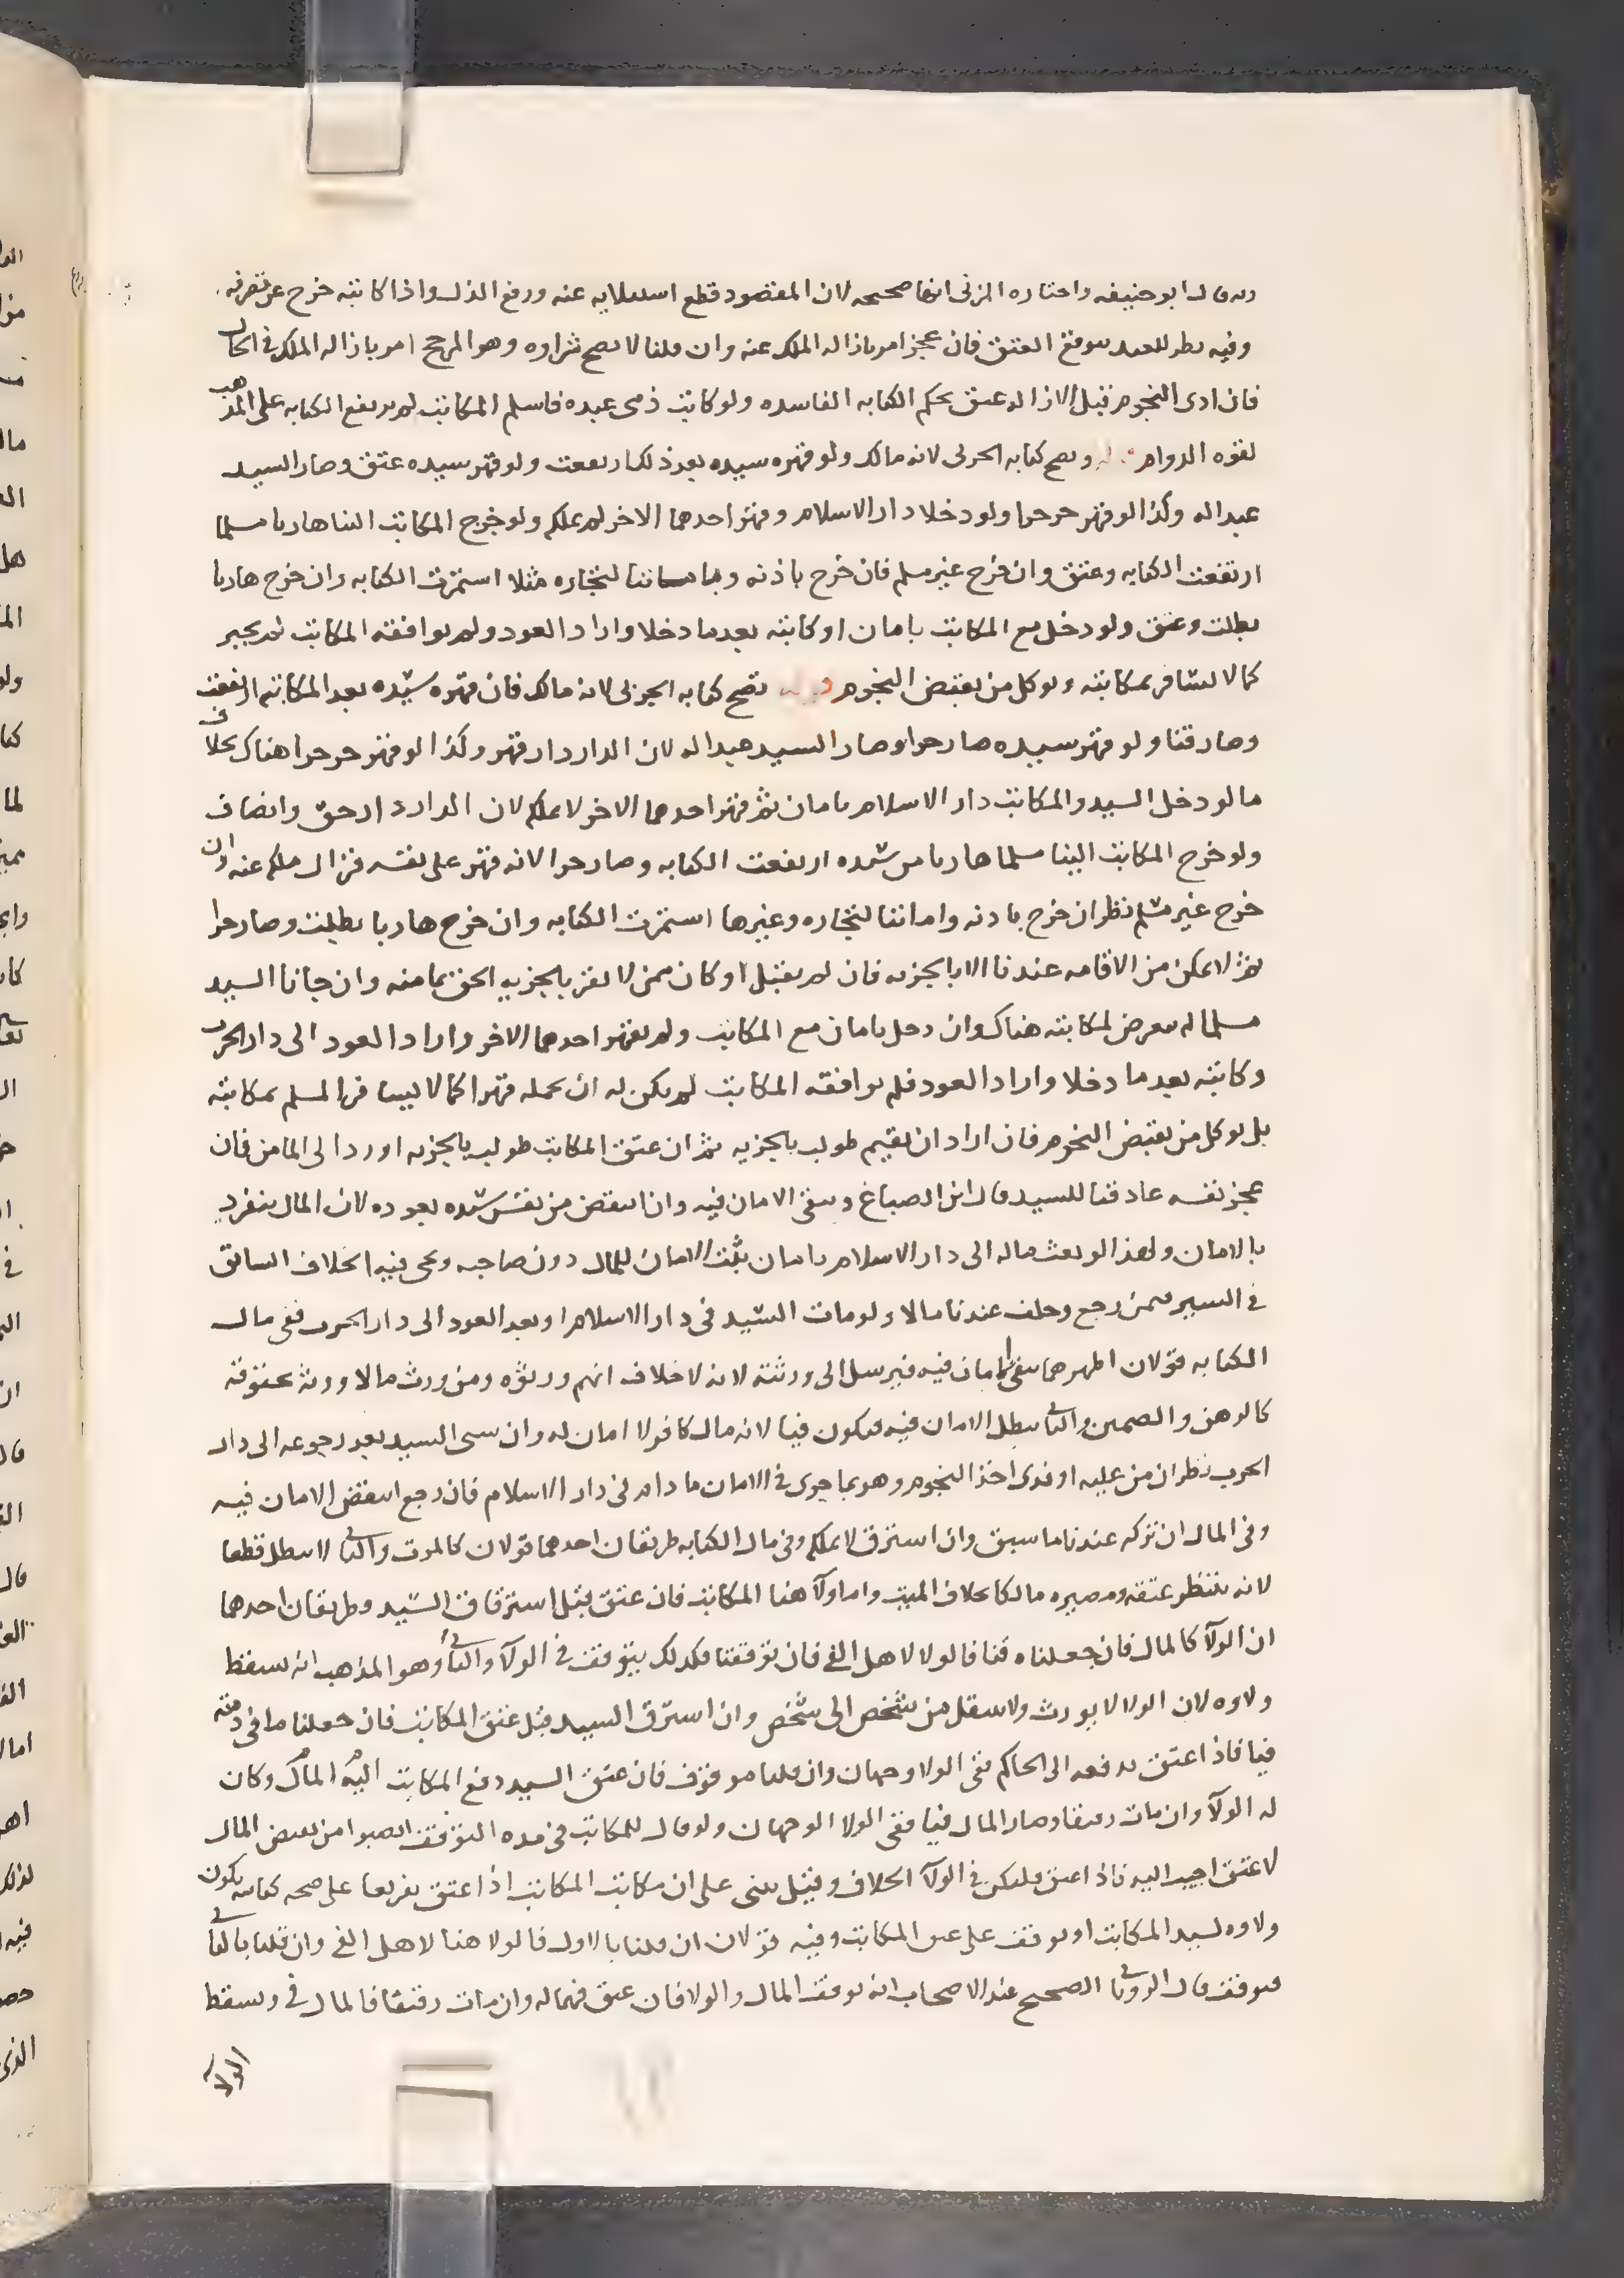 وبه قال ابو حنيفه واختاره المزني انها صحيحه لان المقصود قطع استيلايه عنه ورفع الذل واذا كاتبه خرج عن تصرفه
وفيه نظر للعبد بتوقع العتق فان عجز امر بازاله الملك عنه وان قلنا لا يصح شراوه وهو المرجح امر بازاله الملك في الحال
فان ادى النجوم قبل الازاله عتق بحكم الكتابه الفاسده ولو كاتب ذمى عبده فاسلم المكاتب لم يرتفع الكتابه على المذهب
لقوه الدوام ويصح كتابه الحربى لانه مالك ولو قهره سيده بعد ذلك ارتفعت ولو قهر سيده عتق وصار السيد
عبدا له وكذا لو قهر حر حرا ولو دخلا دار الاسلام وقهر احدهما الاخر لم يملكه ولو خرج المكاتب الينا هاربا مسلما
ارتفعت الكتابه وعتق وان خرج غير مسلم فان خرج باذنه وباماننا لتجاره مثلا استمرت الكتابه وان خرج هاربا
بطلت وعتق ولو دخل مع المكاتب بامان او كاتبه بعدما دخلا واراد العود ولم يوافقه المكاتب لم يجبر
كما لا يسافر بمكاتبه ويوكل من يقبض النجوم تصح كتابه الحربى لانه مالك فان قهره سيده بعد المكاتبه ارتفعت
وصار قنا ولو قهر سيده صار حرا وصار السيد عبدا له لان الدار دار قهر وكذا لو قهر حر حرا هناك بخلاف
ما لو دخل السيد والمكاتب دار الاسلام بامان ثم قهر احدهما الاخر لا يملكه لان الدار دار حق وانصاف
ولو خرج المكاتب الينا مسلما هاربا من سيده ارتفعت الكتابه وصار حرا لانه قهر على نفسه فزال ملكه عنه وان
خرج غير مسلم نظر ان خرج باذنه واماننا لتجاره وغيرها استمرت الكتابه وان خرج هاربا بطلت وصار حرا
ثم لا يمكن من الاقامه عندنا الا بالجزيه فان لم يقبل او كان ممن لا يقر بالجزيه الحق بمامنه وان جانا السيد
مسلما لم يتعرض لمكاتبه هناك وان دخل بامان مع المكاتب ولم يقهر احدهما الاخر واراد العود الى دار الحرب
وكاتبه بعد ما دخلا واراد العود فلم يوافقه المكاتب لم يكن له ان يحمله قهرا كما لا يسافر المسلم بمكاتبه
بل يوكل من يقبض النجوم فان اراد ان يقيم طولب بالجزيه ثم ان عتق المكاتب طولب بالجزيه او رد الى المامن فان
عجز نفسه عاد قنا للسيد قال ابن الصباغ ويبقى الامان فيه وان انتقض من نفس سيده بعوده لان المال ينفرد
بالامان ولهذا لو بعث ماله الى دار الاسلام بامان ثبت الامان للمال دون صاحبه ويجى فيه الخلاف السابق
في السير فيمن رجع وخلف عندنا مالا ولو مات السيد في دار الاسلام او بعد العود الى دار الحرب ففى مال
الكتابه قولان اظهرهما يبقى الامان فيه فيرسل الى ورثته لانه لا خلاف انهم ورثوه ومن ورث مالا ورثه بحقوقه
كالرهن والضمين والثاني يبطل الامان فيه فيكون فيا لانه مال كافر لا امان له وان سبى السيد بعد رجوعه الى دار
الحرب نظر ان من عليه او فدى اخذ النجوم وهو بما جرى في الامان ما دام في دار الاسلام فان رجع انتقض الامان فيه
وفي المال ان تركه عندنا ما سبق وان استرق لا يملكه وفي مال الكتابه طريقان احدهما قولان كالموت والثاني لا يبطل قطعا
لانه ينتظر عتقه ومصيره مالكا بخلاف الميت واما ولآ هذا المكاتب فان عتق قبل استرقاق السيد وطريقان احدهما
ان الولآ كالمال فان جعلناه فيا فالولا لاهل الفي فان توقفنا فكذلك يتوقف في الولآ والثاني وهو المذهب انه يسقط
ولاوه لان الولا لا يورث ولا ينتقل من شخص الى شخص وان استرق السيد قبل عتق المكاتب فان جعلنا ما في ذمته
فيا فاذا اعتق بدفعه الى الحاكم ففى الولا وجهان وان قلنا موقوف فان عتق السيد دفع المكاتب اليه المال وكان
له الولآ وان مات رقيقا وصار المال فيا ففى الولا الوجهان ولو قال للمكاتب في مده التوقف انصبوا من يقبض المال
لاعتق اجيب اليه فاذا اعتق فليكن في الولآ الخلاف وقيل يبنى على ان مكاتب المكاتب اذا عتق تفريعا على صحه كتابته يكون
ولاوه لسيد المكاتب او يوقف على عتق المكاتب وفيه قولان ان قلنا بالاول فالولا هنا لاهل الفي وان قلنا بالثاني
فيوقف قال الروياني الصحيح عند الاصحاب انه يوقف المال والولا فان عتق فهما له وان مات رقيقا فالمال فى ويسقط
الولآ